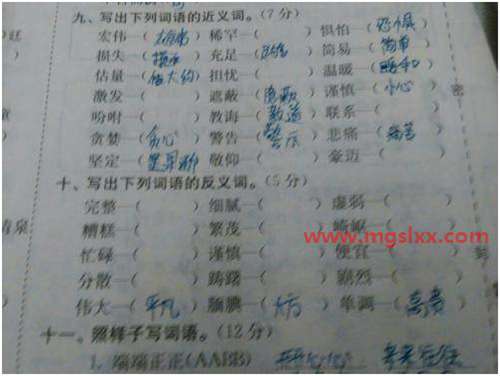 九、写出下列词语的近义词。(7分)
宏伟—( ) 稀罕—( ) 惧怕—(恐惧)
损失—(损坏) 充足—( ) 简易—(简单)
估量—(估大约) 担忧—( ) 温暖—(暖和)
激发—( ) 遮蔽—( ) 谨慎—(小心)
吩咐—( ) 教诲—(教道) 联系—( )
贪婪—(贪心) 警告—(警示) 悲痛—(痛苦)
坚定—( ) 敬仰—( ) 豪迈—( )
十、写出下列词语的反义词。(5分)
完整—( ) 细腻—( ) 虚弱—( )
糟糕—( ) 繁茂—( ) 崎岖—( )
www.mgslxx.com
忙碌—( ) 谨慎—( ) 便宜—( )
分散—( ) 踌躇—( ) 剧烈—( )
伟大—(平凡) 腼腆—(大方) 单调—( )
十一、照样子写词语。(12分)
1. 端端正正(AABB)